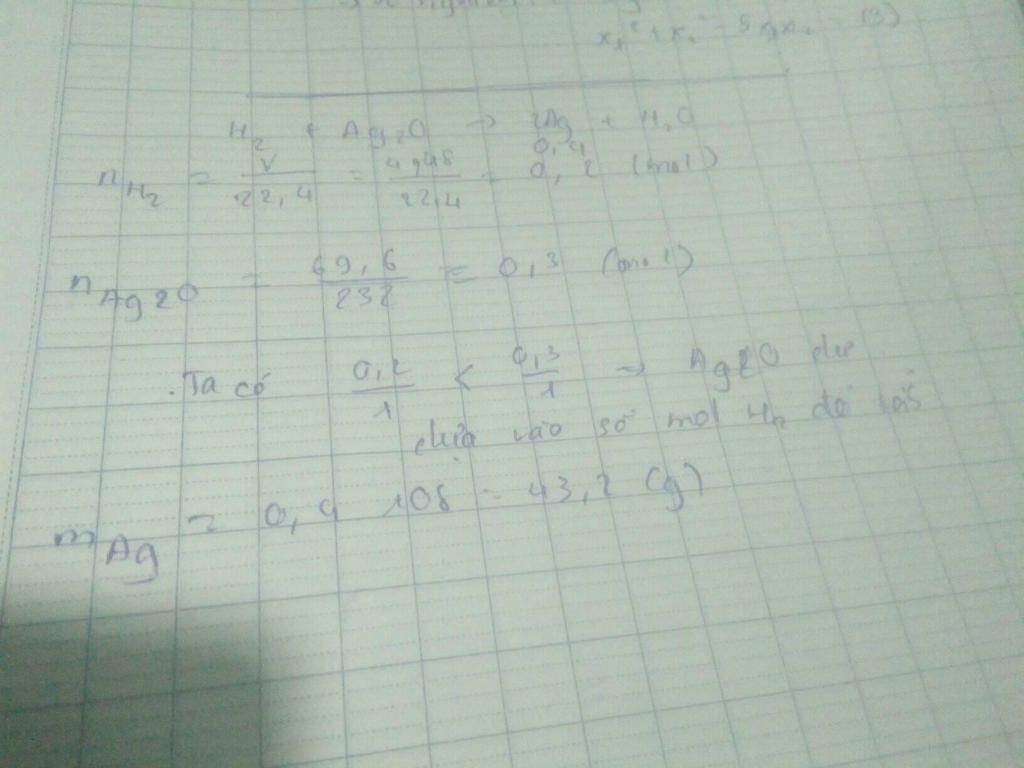 x₁² + x₂² - 5x₁x₂ (3)
H₂ + Ag₂O → 2Ag + H₂O
0,4
nH₂ = V/22,4 = 4,48/22,4 = 0,2 (mol)
nAg2O = 69,6/232 = 0,3 (mol)
Ta có 0,2/1 < 0,3/1 → Ag2O dư
dựa vào số mol H₂ để
mAg = 0,4 108 = 43,2 (g)